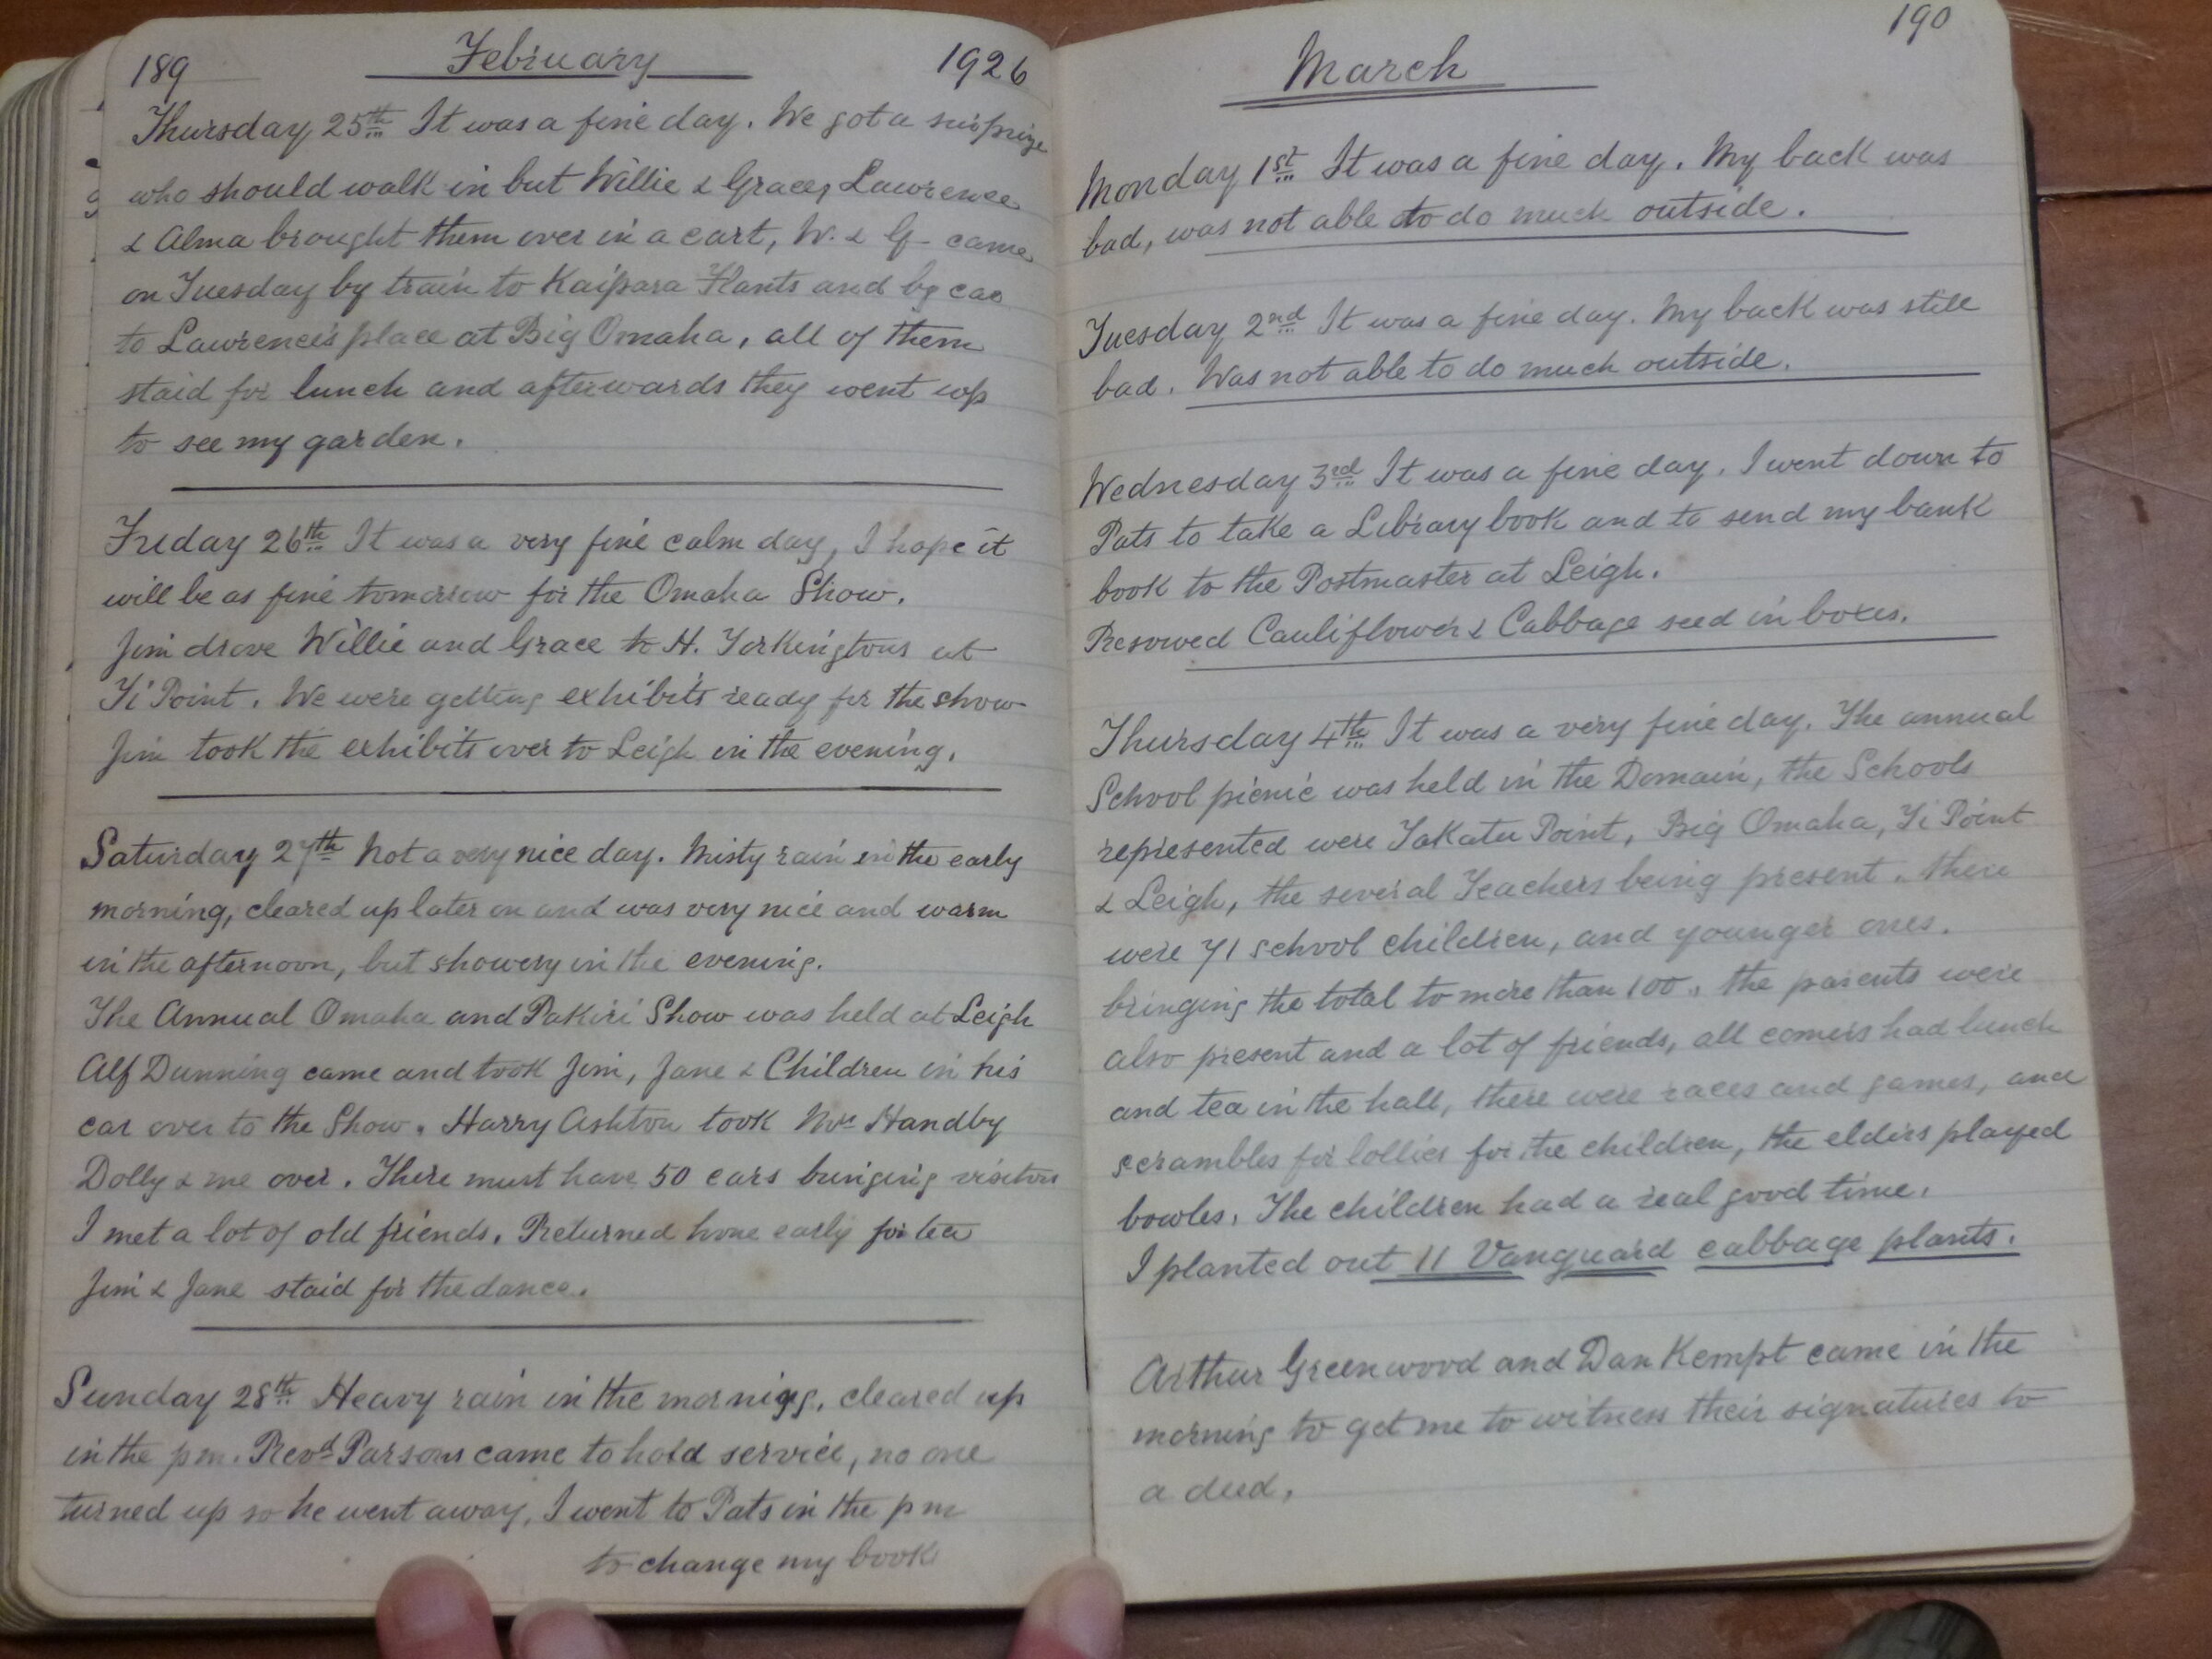 189 February 1926
Thursday 25th It was a fine day. We got a surprize
who should walk in but Willie & Grace, Lawrence
& Alma brought them over in a cart, W. & G- came
on Tuesday by train to Kaipara Flants and by car
to Lawrence's place at Big Omaha, all of them
staid for lunch and afterwards they went up
to see my garden.
Friday 26th It was a very fine calm day, I hope it
will be as fine tomorrow for the Omaha Show.
Jim drove Willie and Grace to H. Torkingtons at
Ti Point. We were getting exhibits ready for the show
Jim took the exhibits over to Leigh in the evening.
Saturday 27th Not a very nice day. Misty rain in the early
morning, cleared up later on and was very nice and warm
in the afternoon, but showery in the evening.
The Annual Omaha and Pakiri Show was held at Leigh
Alf Dunning came and took Jim, Jane & Children in his
car over to the Show. Harry Ashton took Mrs Handby
Dolly & me over. There must have 50 cars bringing visitors
I met a lot of old friends. Returned home early for tea
Jim & Jane staid for the dance.
Sunday 28th Heavy rain in the morning, cleared up
in the pm. Revd Parsons came to hold service, no one
turned up so he went away. I went to Pats in the pm
to change my book
190
March
Monday 1st It was a fine day. My back was
bad, was not able to do much outside.
Tuesday 2nd It was a fine day. My back was still
bad. Was not able to do much outside.
Wednesday 3rd It was a fine day. I went down to
Pats to take a Library book and to send my bank
book to the Postmaster at Leigh.
Resowed Cauliflower & Cabbage seed in boxes.
Thursday 4th It was a very fine day. The annual
School picnic was held in the Domain, the Schools
represented were Takatu Point, Big Omaha, Ti Point
& Leigh, the several Teachers being present. there
were 71 school children, and younger ones.
bringing the total to more than 100. the parents were
also present and a lot of friends, all comers had lunch
and tea in the hall, there were races and games, and
scrambles for lollies for the children, the elders played
bowles. The children had a real good time.
I planted out 11 Vanguard cabbage plants.
Arthur Greenwood and Dan Kempt came in the
morning to get me to witness their signatures to
a deed.